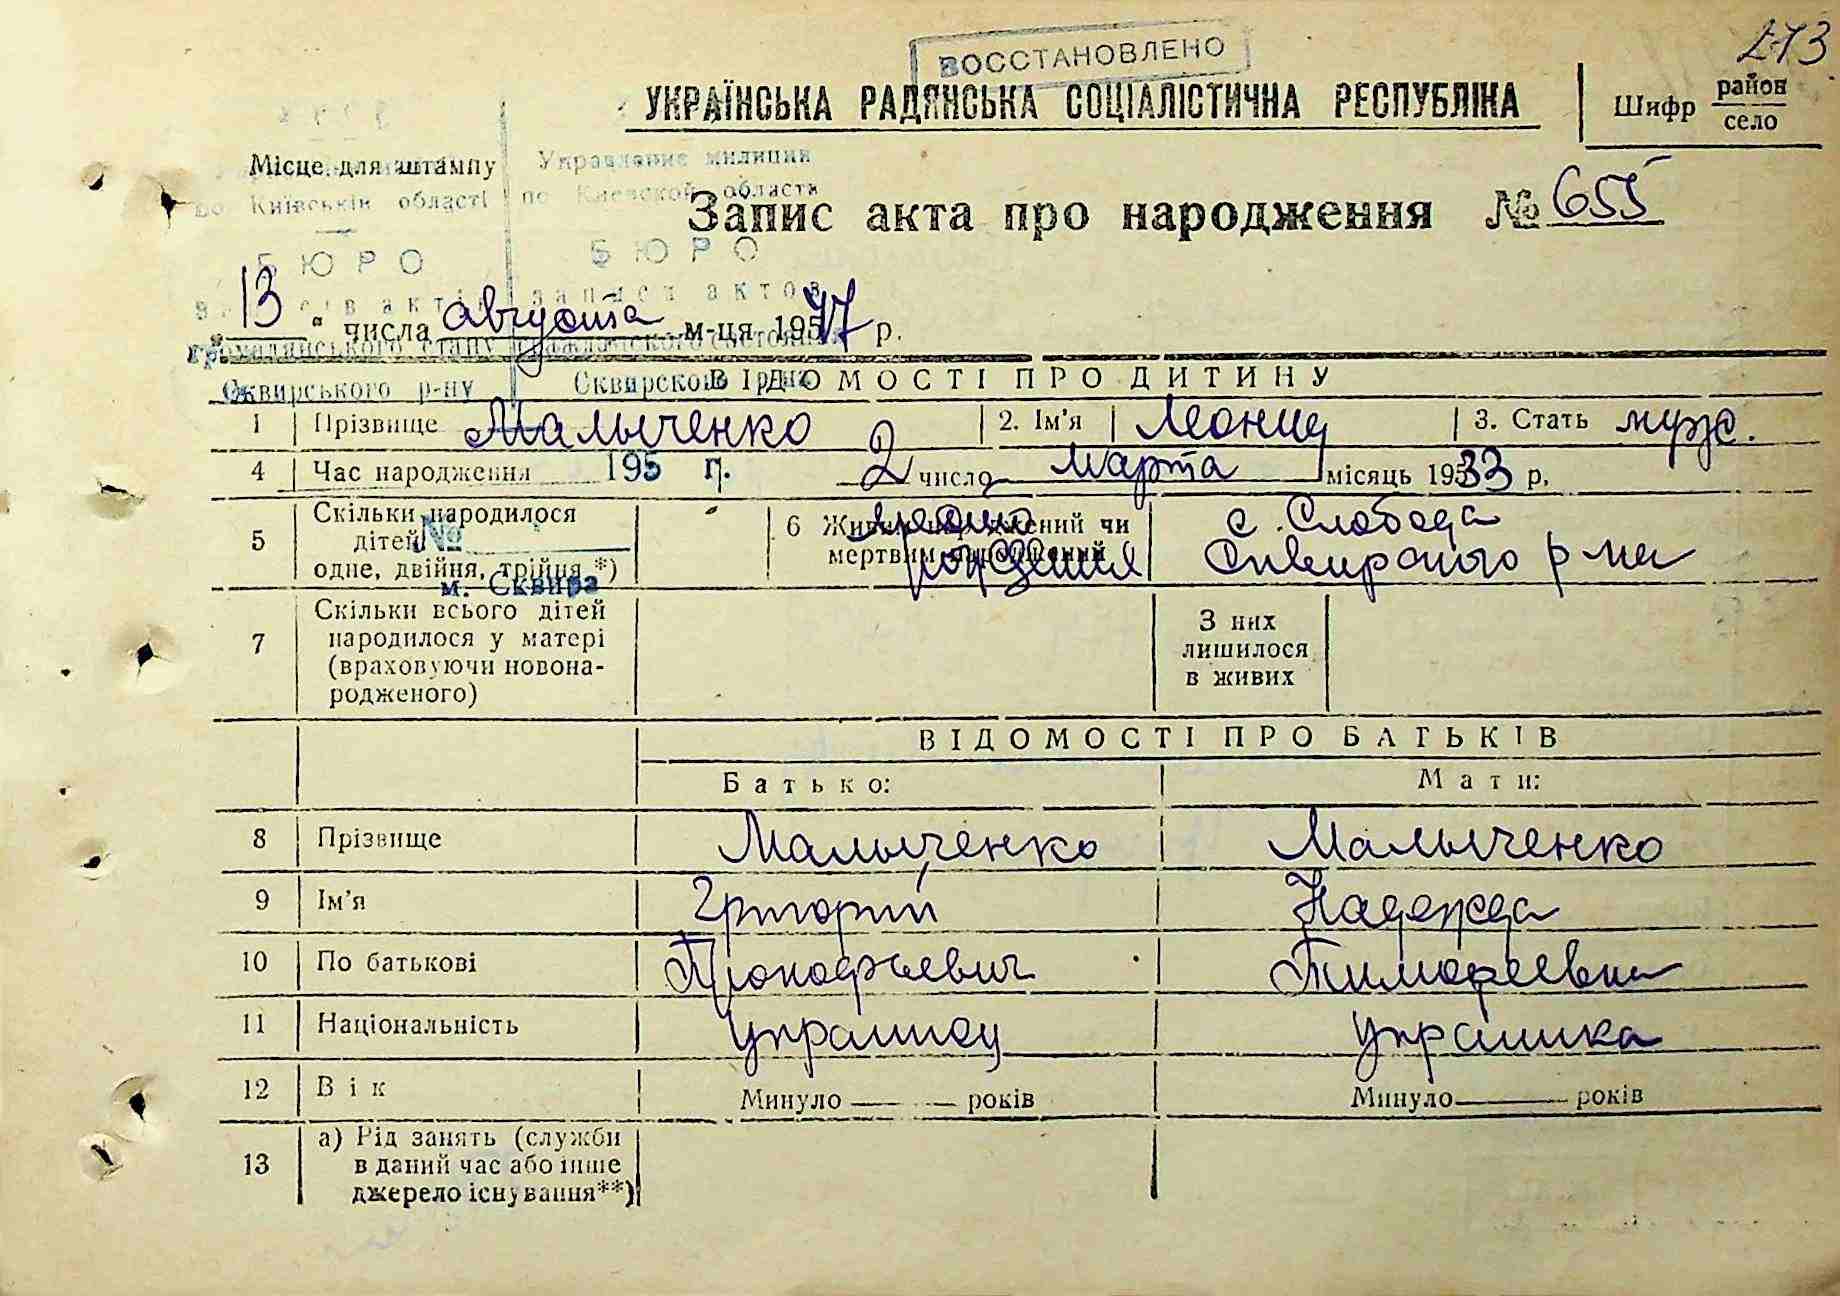 273
ВОССТАНОВЛЕНО
УКРАЇНСЬКА РАДЯНСЬКА СОЦІАЛІСТИЧНА РЕСПУБЛІКА
Шифр район
село
Місце для штампу Управление милиции
по Київській області по Киевской области
Запис акта про народження № 655
БЮРО БЮРО
записи актов
13 числа августа м-ця 1957 р.
громадянського стану гражданского состояния
Сквирського р-ну Сквирского р-на
ВІДОМОСТІ ПРО ДИТИНУ
1 Прізвище Малыченко 2. Ім'я Леонид 3. Стать муж.
4 Час народження 195 г. 2 число марта місяць 1933 р.
5 Скільки народилося дітей одне, двійня, трійня *)
№
м. Сквира
6 Живим народжений чи мертвим народжений
место рождения
с. Слобода
Сквирского р-на
7 Скільки всього дітей народилося у матері (враховуючи новона-родженого)
З них лишилося в живих
ВІДОМОСТІ ПРО БАТЬКІВ
Батько: Мати:
8 Прізвище Малыченко Малыченко
9 Ім'я Григорий Надежда
10 По батькові Прокофьевич Тимофеевна
11 Національність украинец украинка
12 Вік Минуло — років Минуло — років
13 а) Рід занять (служби
в даний час або інше
джерело існування**)